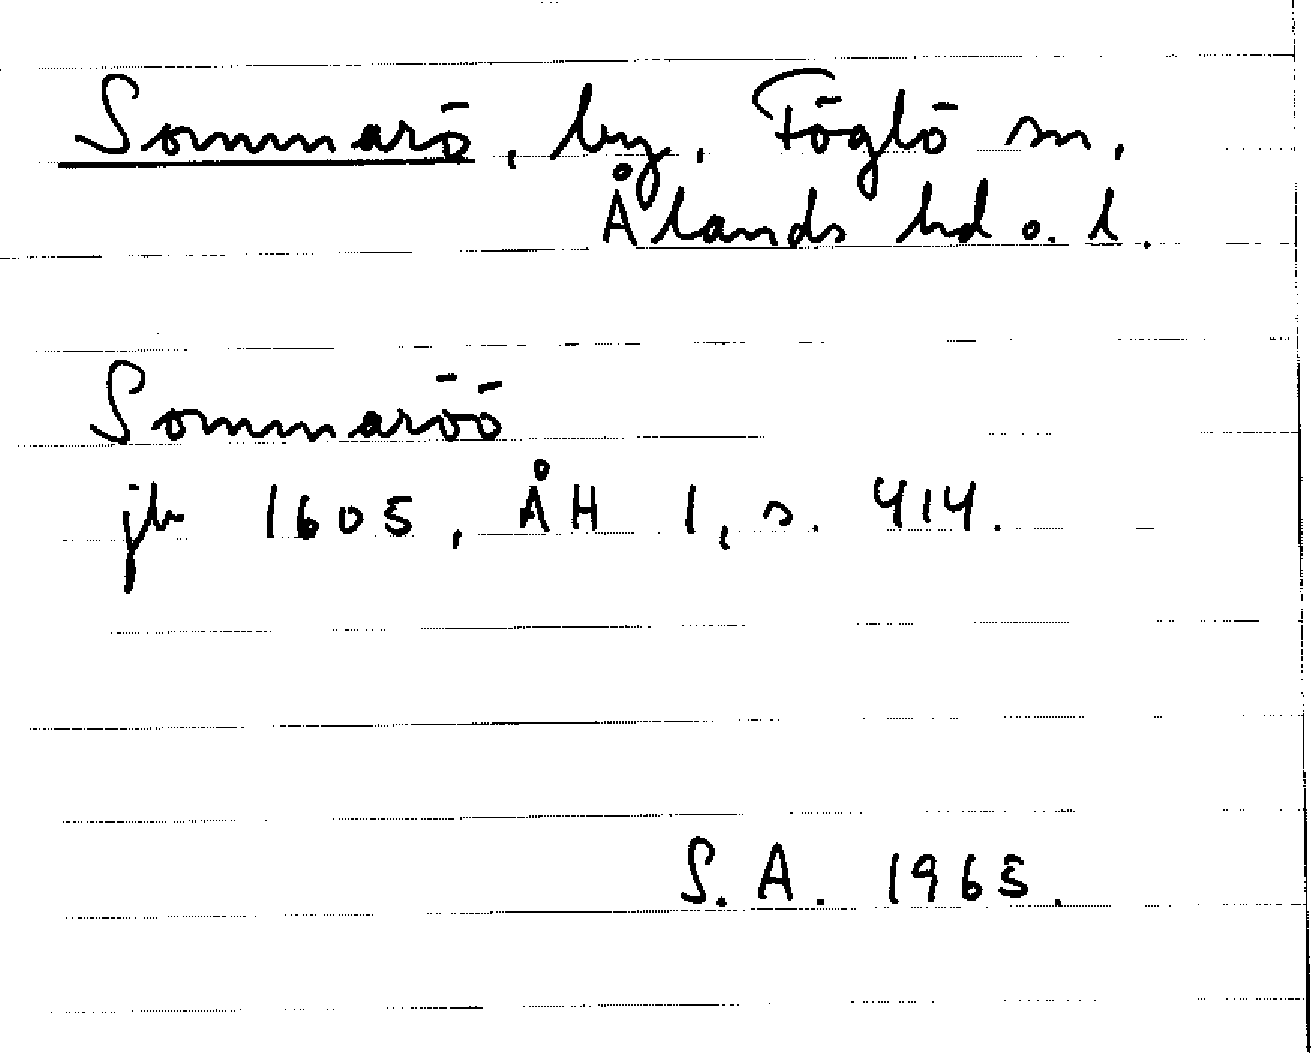 Sommarö, by, Föglö sn,
Ålands hd o. l.
Sommaröö
jb 1605, ÅH 1, s. 414.
S. A. 1965.